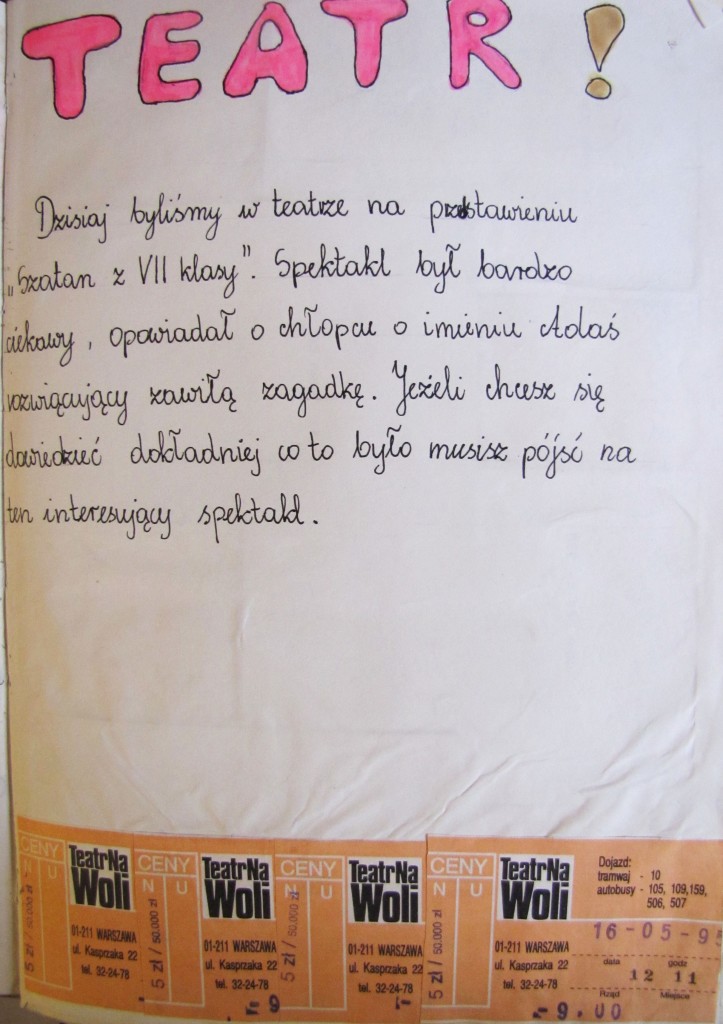 TEATR!
Dzisiaj byliśmy w teatrze na przdstawieniu
„Szatan z VII klasy”. Spektakl był bardzo
ciekawy, opowiadał o chłopcu o imieniu Adaś
rozwiącujący zawiłą zagadkę. Jeżeli chcesz się
dowiedzieć dokładniej co to było musisz pójść na
ten interesujący spektakl.
CENY
N U
5 zł / 50.000 zł
TeatrNa
Woli
01-211 WARSZAWA
ul. Kasprzaka 22
tel. 32-24-78
CENY
N U
5 zł / 50.000 zł
TeatrNa
Woli
01-211 WARSZAWA
ul. Kasprzaka 22
tel. 32-24-78
9
CENY
N U
5 zł / 50.000 zł
TeatrNa
Woli
01-211 WARSZAWA
ul. Kasprzaka 22
tel. 32-24-78
CENY
N U
5 zł / 50.000 zł
TeatrNa
Woli
01-211 WARSZAWA
ul. Kasprzaka 22
tel. 32-24-78
Dojazd:
tramwaj - 10
autobusy - 105, 109,159,
506, 507
16-05-9
data godz
12 11
Rząd Miejsce
9.00